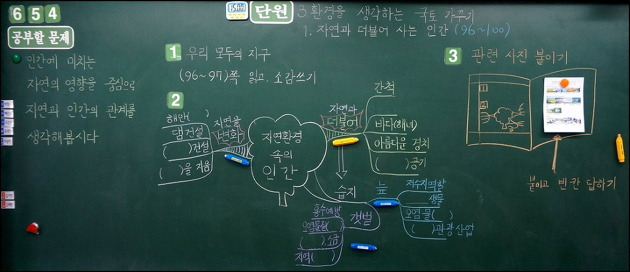 6 5 4
공부할 문제
인간에 미치는
자연의 영향을 중심으로
자연과 인간의 관계를
생각해 봅시다
단원 3. 환경을 생각하는 국토 가꾸기
1. 자연과 더불어 사는 인간 (96~100)
1 우리 모두의 지구
(96~97)쪽 읽고, 소감쓰기
2
해안( )
댐건설
( )건설
( )을 지음
자연을
변화
자연환경
속의
인간
자연과
더불어
간척
바다(해녀)
아름다운 경치
( )공기
습지
늪
저수지역할
생물
오염물( )
( )관광산업
갯벌
홍수예방
( )소금
지역( )
3 관련 사진 붙이기
붙이고 빈 칸 답하기